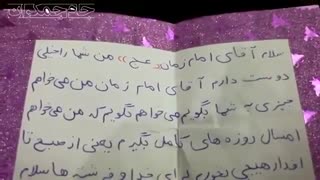 سلام آقای امام زمان «عج» من شما را خیلی
دوست دارم آقای امام زمان من می خواهم
چیزی به شما بگویم می خواهم بگویم که من می خواهم
امسال روزه های کامل بگیرم یعنی از صبح تا
افطار هیچی نخورم برای خدا و فرشته ها سلام